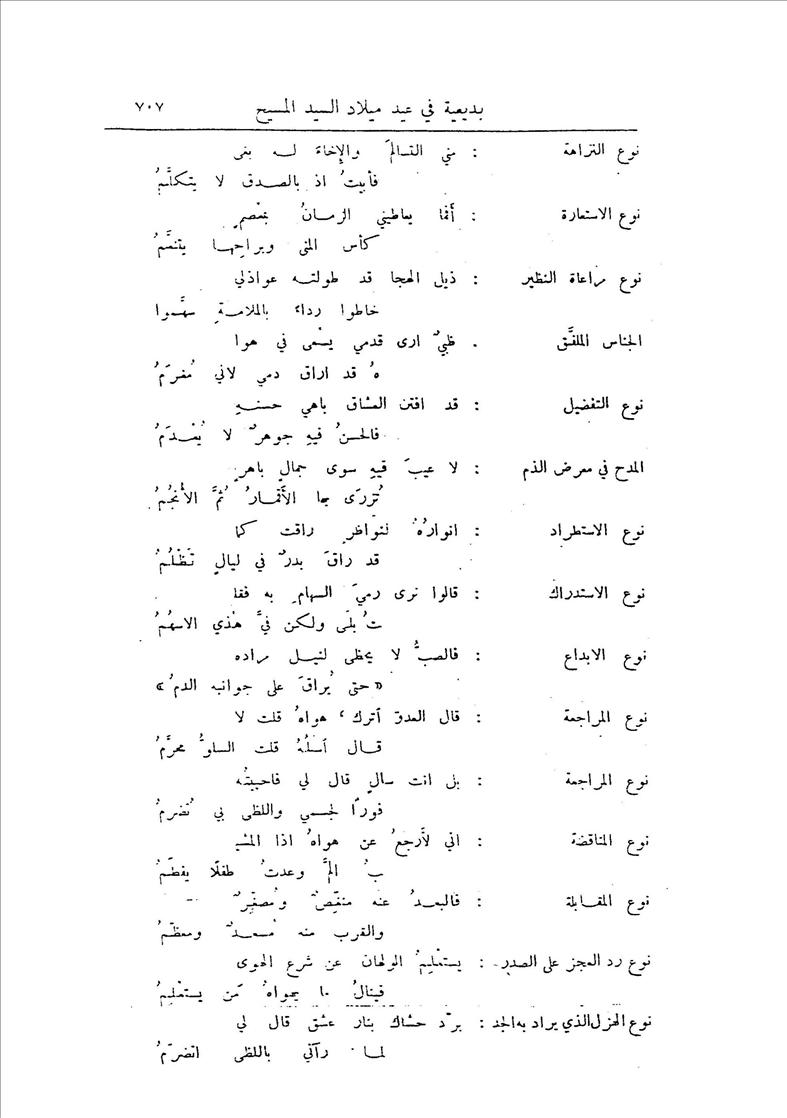 بديعية في عيد ميلاد السيد المسيح ٧٠٧
نوع النزاهة : مني التسالمَ والإخاءَ لـه بغى
فأبيتُ اذ بالصـدق لا يتكلَّمُ
نوع الاستعارة : أنَّما يعاطيني الزمـانُ بمعصمٍ
كأس المنى وبراحِهـا يتنسَّمُ
نوع مراعاة النظير : ذيل الهجا قد طولتـه عواذلي
خاطوا رداءً بالملامـةِ سهَّمـوا
الجناس الملفَّق . ظبيٌ ارى قدمي يسْعى في هوا
هُ قد اراق دمي لاني مُغرَمُ
نوع التفضيل : قد افتن العشاق باهي حسنـهِ
فالحسنُ فيهِ جوهرٌ لا يُعْـدَمُ
المدح في معرض الذم : لا عيبَ فيهِ سوى جمالٍ باهرٍ
تُزرَى بها الأَقمارُ ثُمَّ الأَنجُمُ
نوع الاستطراد : انوارُهُ لنواظرٍ راقت كما
قد راقَ بدرٌ في ليالٍ تَظْلُمُ
نوع الاستدراك : قالوا نرى رميَ السهامِ به فقلـ
تُ بلَى ولكن فيَّ هٰذي الاسهُمُ
نوع الابداع : فالصبُّ لا يحظى لنيـل مراده
«حتى يُراقَ على جوانبه الدمُ»
نوع المراجعة : قال العدوّ أترك، هواهُ قلت لا
قـال اَسلُهُ قلت السلوُّ محرَّمُ
نوع المراجعة : بل انت سالٍ قال لي فاجبتُه
فورًا لجسمي واللظى بي تُضرمُ
نوع المناقضة : اني لأَرجعُ عن هواهُ اذا المشيـ
ـبُ المَّ وعدتُ طفلًا يفطَمُ
نوع المقابلة : فالبعـدُ عنه منغّصٌ ومُصغِّرٌ
والقرب منه مُسعـدٌ ومعظِّمُ
نوع رد العجز على الصدر : يستعْلِمُ الولهان عن شرع الهوى
فينالُ ما يهواهُ مَن يستعْلِمُ
نوع الهزل الذي يراد به الجد : برّد حشاك بنار عشق قال لي
لمـا رآني باللظى اتضرّمُ